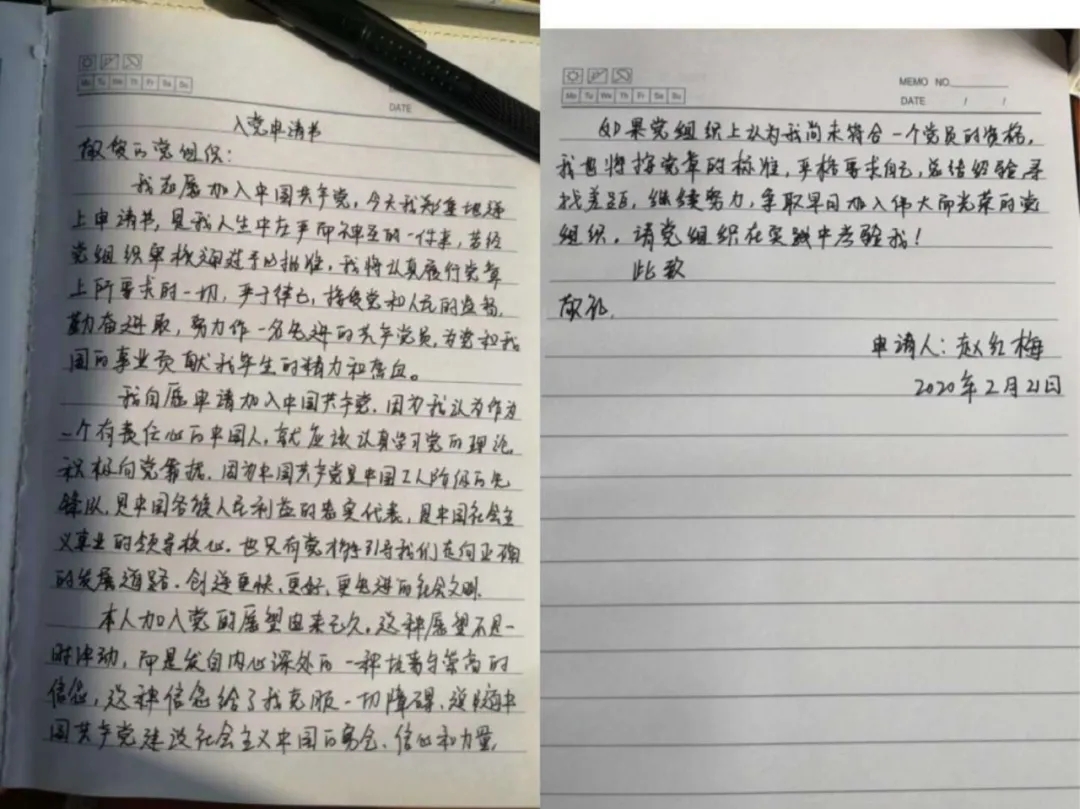 Mo Tu We Th Fr Sa Su
DATE
入党申请书
敬爱的党组织:
我志愿加入中国共产党,今天我郑重地递
上申请书,是我人生中庄严而神圣的一件事,若经
党组织审核通过予以批准,我将认真履行党章
上所要求的一切,严于律己,接受党和人民的监督,
勤奋进取,努力作一名先进的共产党员,为党和我
国的事业贡献我毕生的精力和热血。
我自愿申请加入中国共产党,因为我认为作为
一个有责任心的中国人,就应该认真学习党的理论
积极向党靠拢。因为中国共产党是中国工人阶级的先
锋队,是中国各族人民利益的忠实代表,是中国社会主
义事业的领导核心。也只有党才能引导我们走向正确
的发展道路。创造更快、更好、更先进的社会文明。
本人加入党的愿望由来已久。这种愿望不是一
时冲动,而是发自内心深处的一种执著与崇高的
信念,这种信念给了我克服一切障碍、追随中
国共产党建设社会主义中国的勇气、信心和力量,
Mo Tu We Th Fr Sa Su
MEMO NO.
DATE / /
如果党组织上认为我尚未符合一个党员的资格,
我也将按党章的标准,严格要求自己,总结经验,寻
找差距,继续努力,争取早日加入伟大而光荣的党
组织。请党组织在实践中考验我!
此致
敬礼
申请人:赵红梅
2020年2月21日